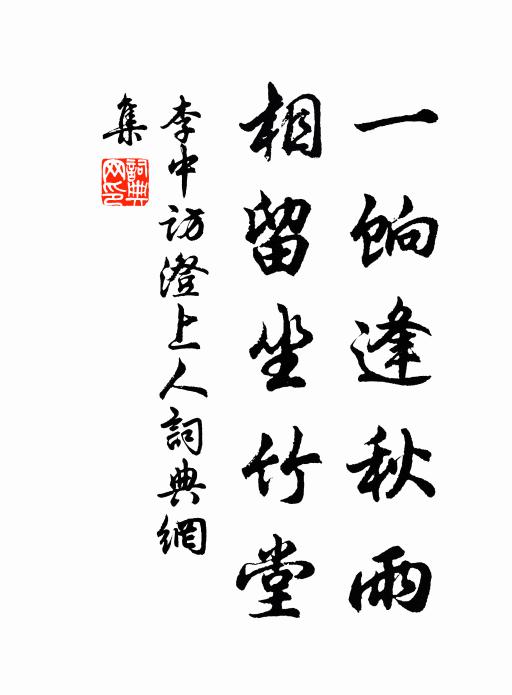 一餉逢秋雨
相留坐竹堂
李中訪澄上人詞典網
集
詞典
网印